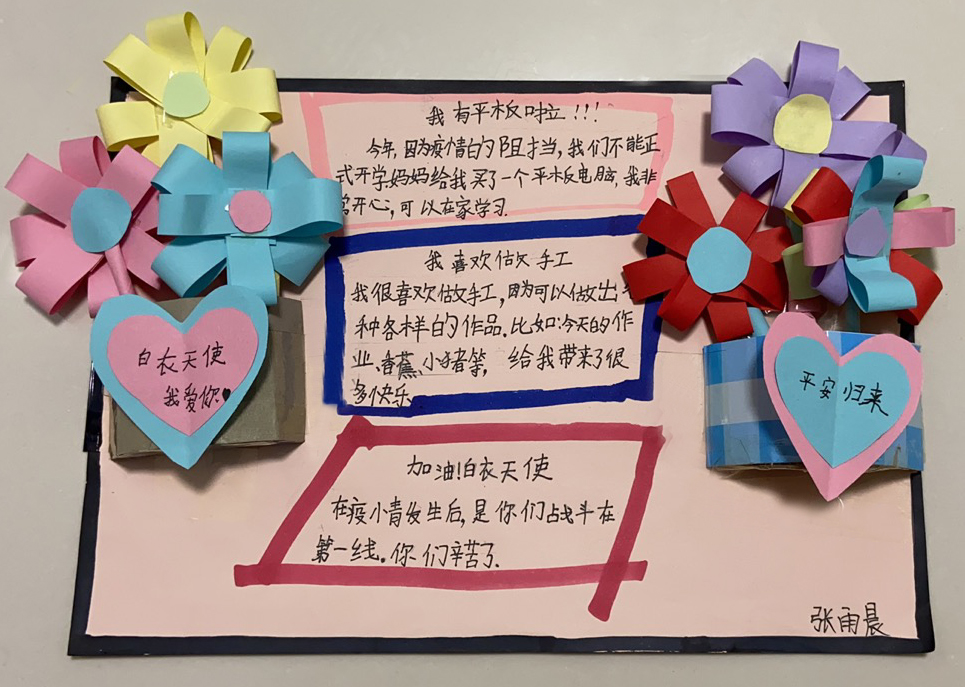 我有平板啦!!!
今年,因为疫情的阻挡,我们不能正
式开学.妈妈给我买了一个平板电脑,我非
常开心,可以在家学习.
我喜欢做手工
我很喜欢做手工,因为可以做出
种各样的作品.比如:今天的作
业、香蕉、小猪等,给我带来了很
多快乐
加油!白衣天使
在疫情发生后,是你们战斗在
第一线。你们辛苦了.
白衣天使
我爱你
平安归来
张雨晨